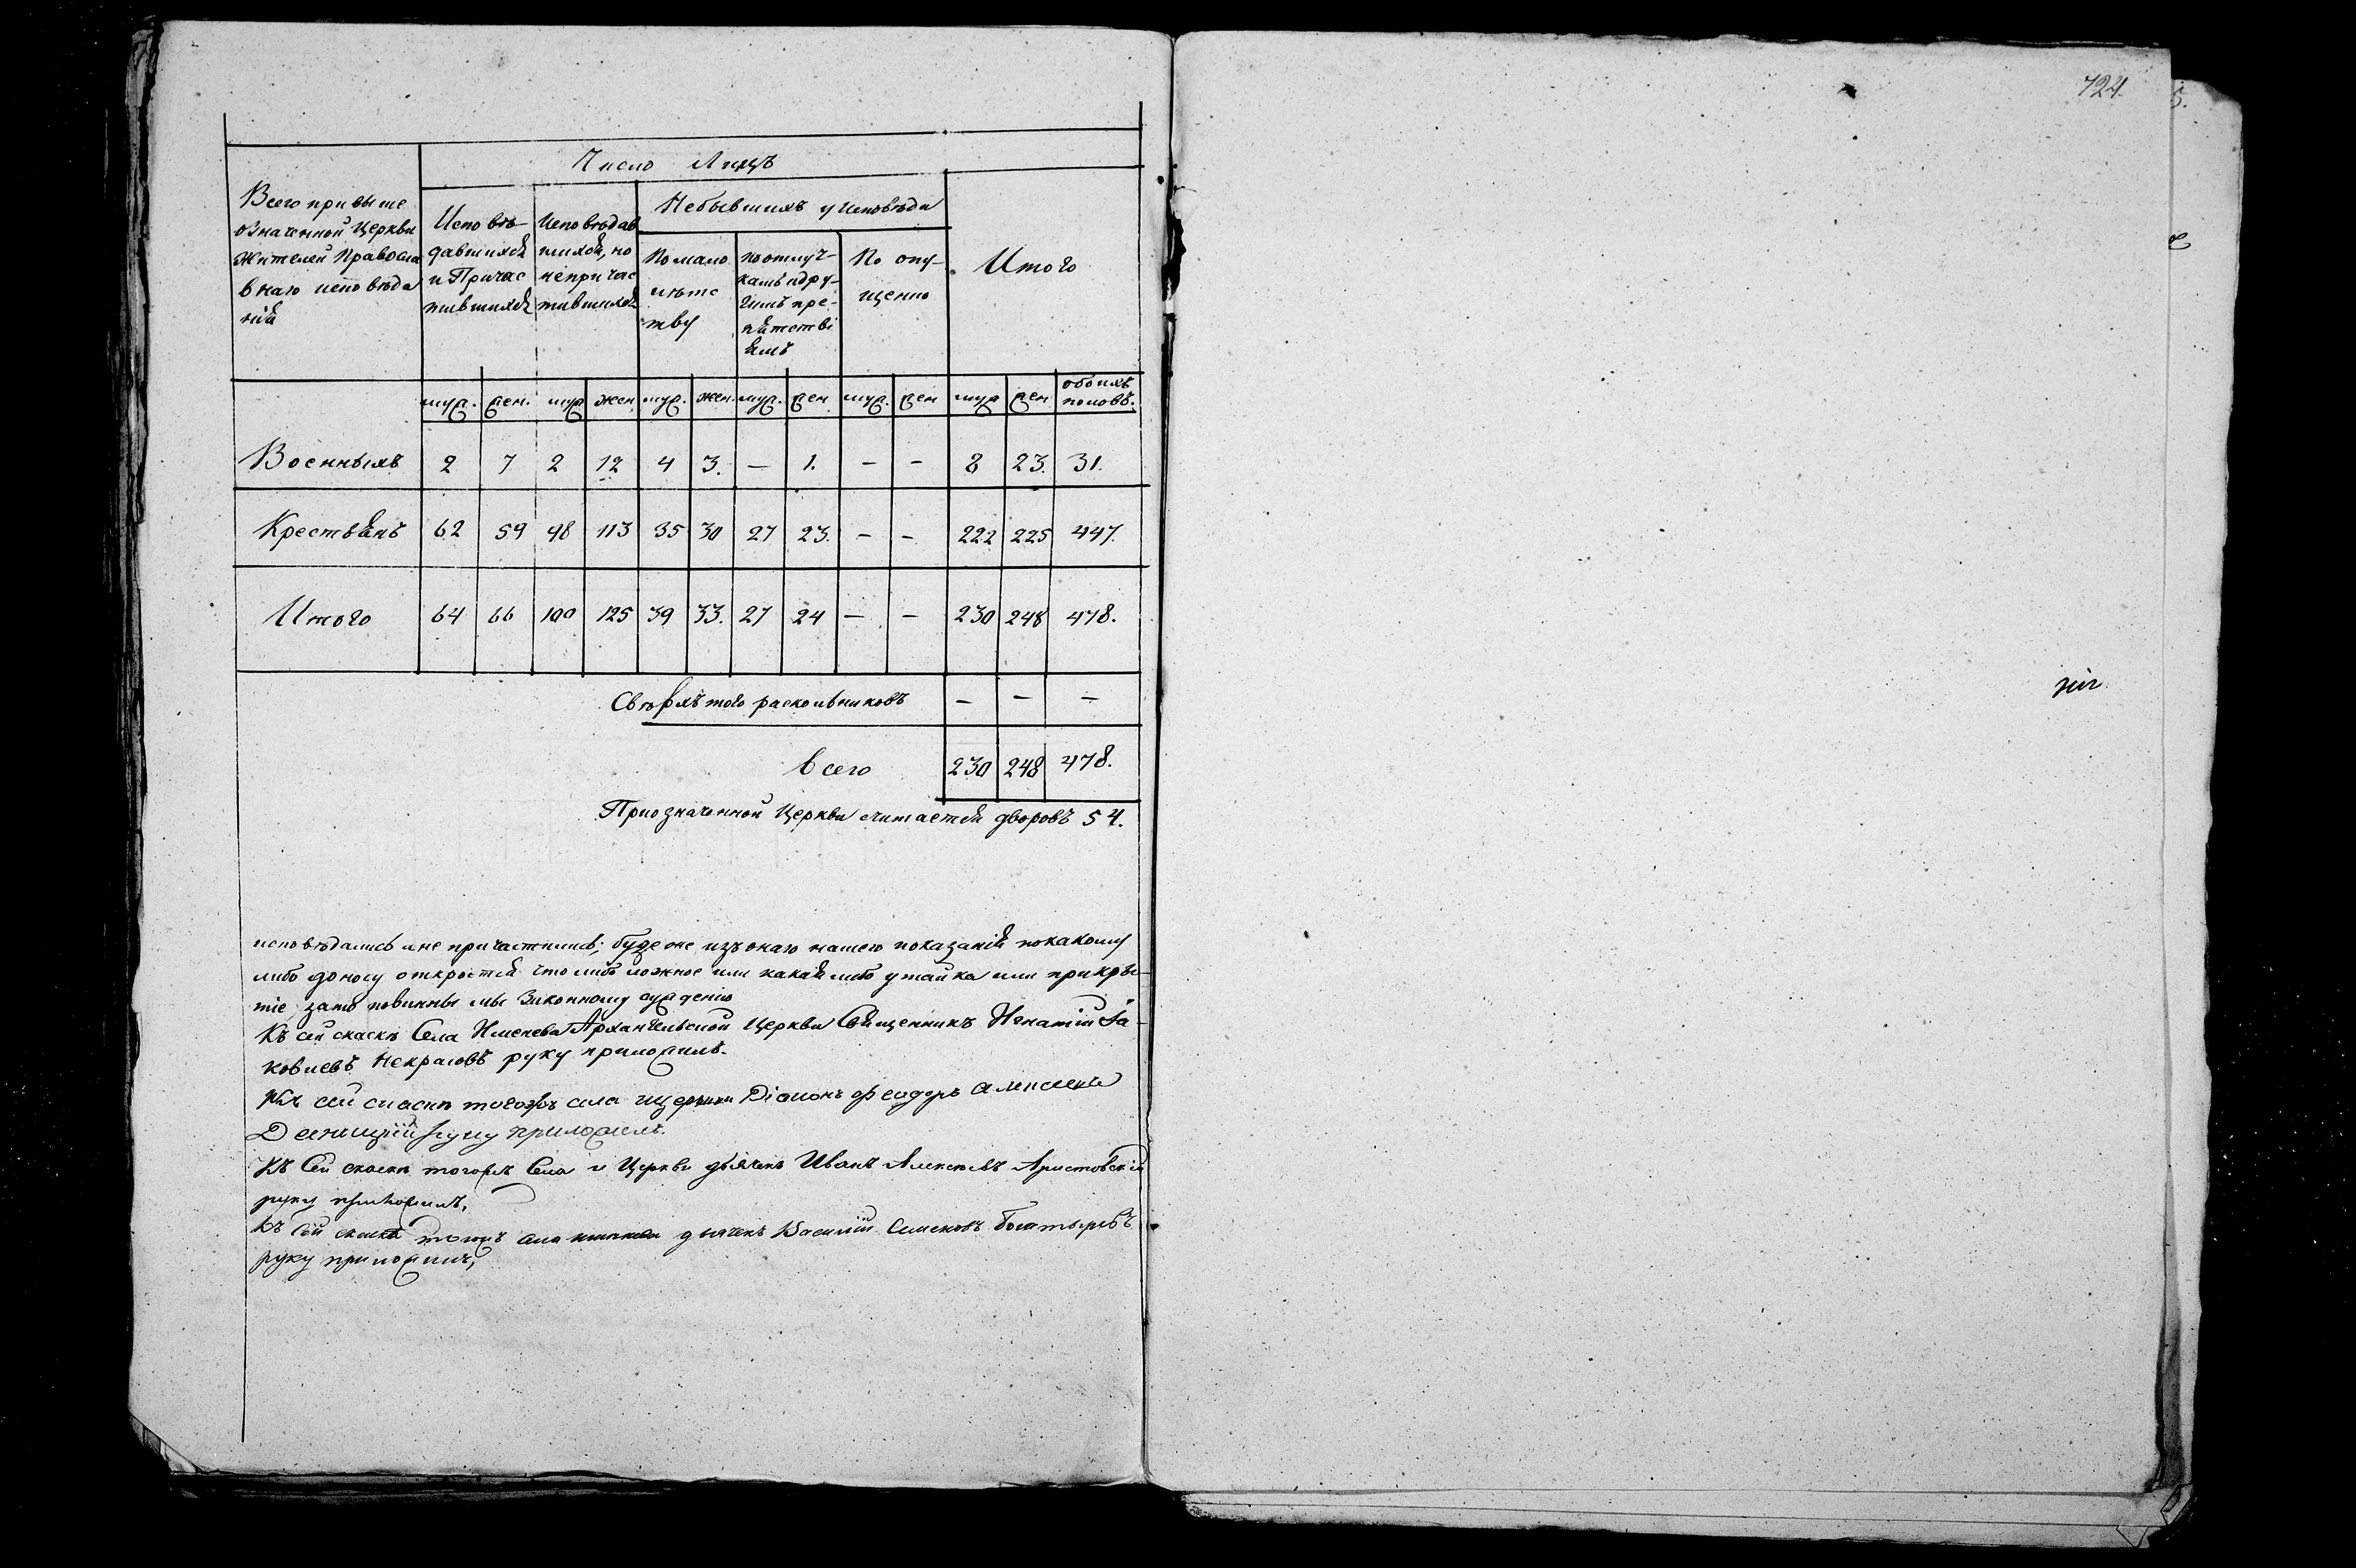 724.
Число Лицъ
Всего при выше
означенной Церкви
Жителей Правосла
внаго исповѣда
нія
Исповѣ-
давшихся
и Причас
тившихся
Исповѣдав
шихся, но
непричас
тившихся
Небывшихъ у исповѣди
По мало
лѣтс
тву
по отлуч-
камъ и дру-
гимъ пре-
пятстві
ямъ
По опу-
щенію
Итого
муж. жен. муж жен муж. жен. муж. жен муж. жен муж жен обоихъ половъ.
Военныхъ 2 7 2 12 4 3. — 1. — — 8 23. 31.
Крестьянъ 62 59 98 113 35 30 27 23. — — 222 225 447.
Итого 64 66 100 125 39 33. 27 24 — — 230 248 478.
Сверхъ того раскольниковъ — — —
Всего 230 248 478.
При означенной Церкви считается дворовъ 54.
исповѣдались и не причастились; буде же изъ онаго нашего показанія по какому
либо доносу откроется что либо ложное или какая либо утайка или прикры-
тіе, за то повинны мы Законному суждению
Къ сей скаскѣ Села Архангельской Церкви Священникъ Игнатій Іа-
ковлевъ Некрасовъ руку приложилъ.
Къ сей скаскѣ тогожъ села церкви Діаконъ Феодоръ Алексеевъ
руку приложилъ.
Къ Сей скаскѣ тогожъ Села и Церкви дьячекъ Иванъ Алексеевъ Аристовскій
руку приложилъ,
Къ сей скаскѣ тогожъ села дьячекъ Василій Семеновъ Богатыревъ
руку приложилъ,